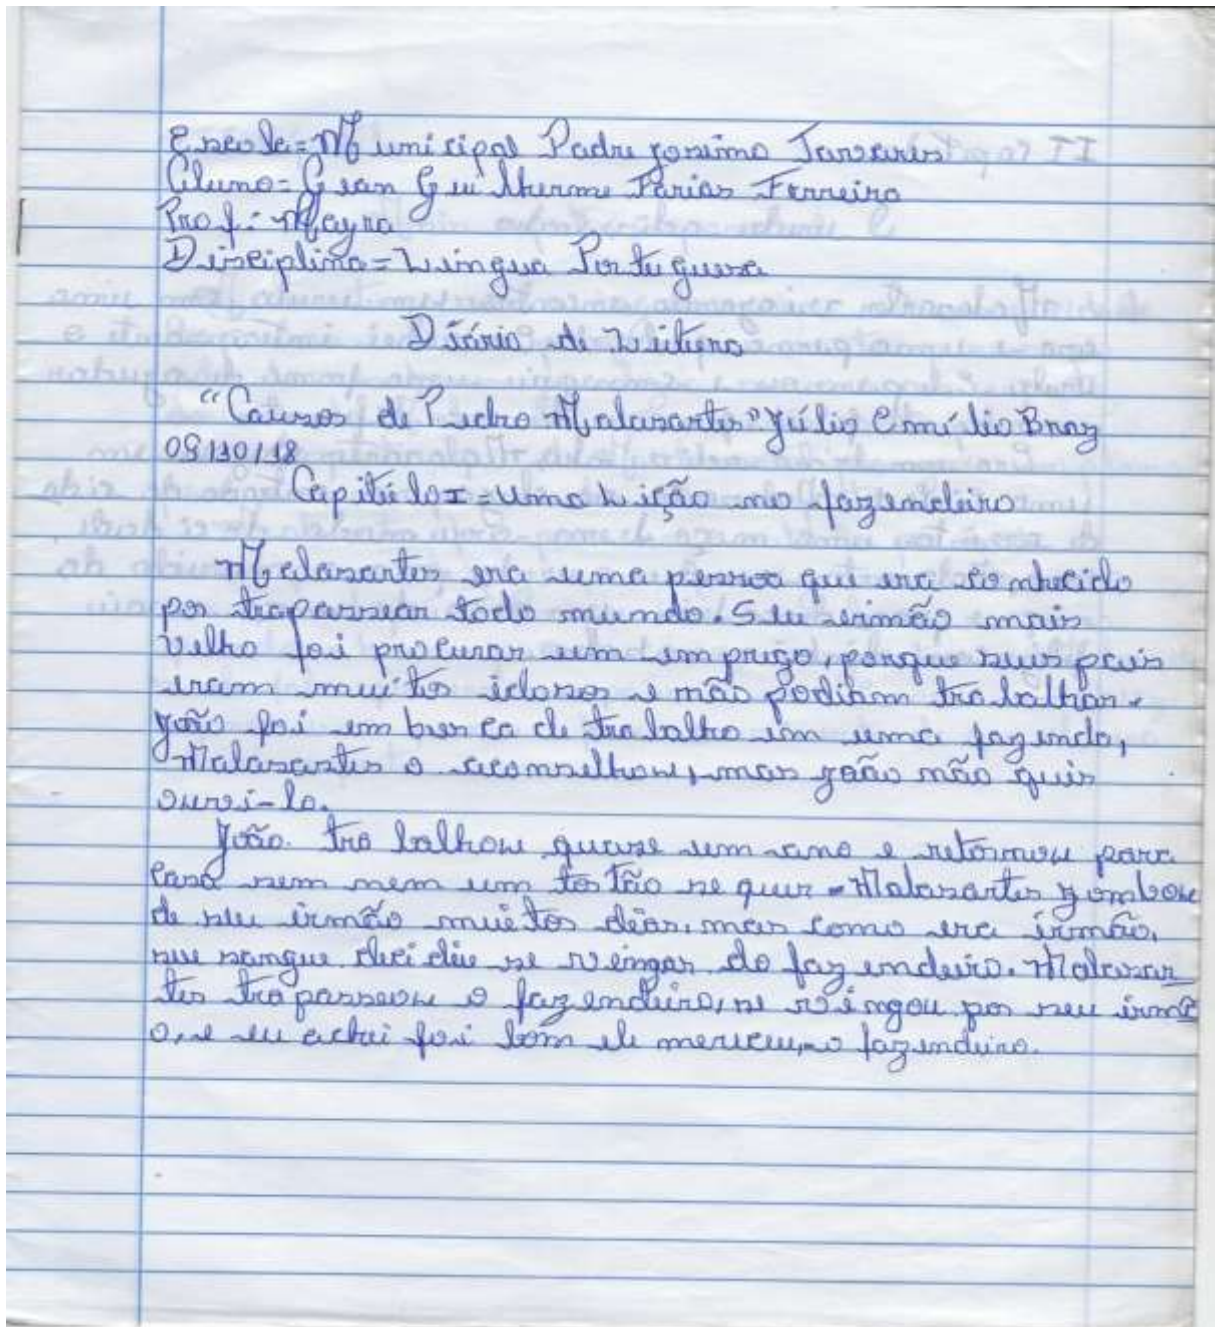 Escola= Municipal Padre Josimo Tavares
Aluno= Gean Guilherme Farias Ferreira
Prof: Mayra
Disciplina= Língua Portuguesa
Diário de Leitura
"Causos de Pedro Malasartes" Júlio Emílio Braz
09/10/18
Capítulo I = Uma Lição no fazendeiro
Malasartes era uma pessoa que era conhecido
por trapassear todo mundo. Seu irmão mais
velho foi procurar um emprego, porque seus pais
eram muitos idosos e não podiam trabalhar.
João foi em busca de trabalho em uma fazenda,
Malasartes o aconselhou, mas João não quis
ouvi-lo.
João trabalhou quase um ano e retornou para
casa sem nem um tostão se quer. Malasartes zombou
de seu irmão muitos dias, mas como era irmão,
seu sangue decidiu se vingar do fazendeiro. Malasar
tes trapasseou o fazendeiro, se vingou por seu irmã
o, e eu achei foi bom ele mereceu, o fazendeiro.